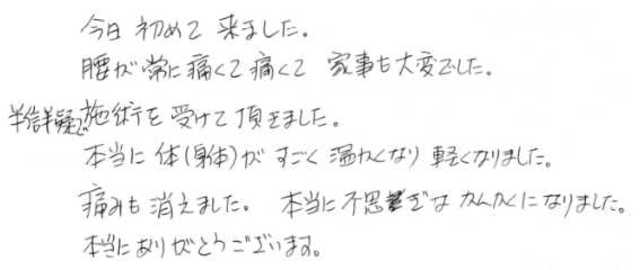 今日 初めて 来ました。
腰が 常に 痛くて 痛くて 家事も大変でした。
半信半疑で施術を 受けて 頂きました。
本当に 体(身体)が すごく 温かくなり 軽くなりました。
痛みも 消えました。 本当に 不思ぎな かんかくに なりました。
本当に ありがとうございます。